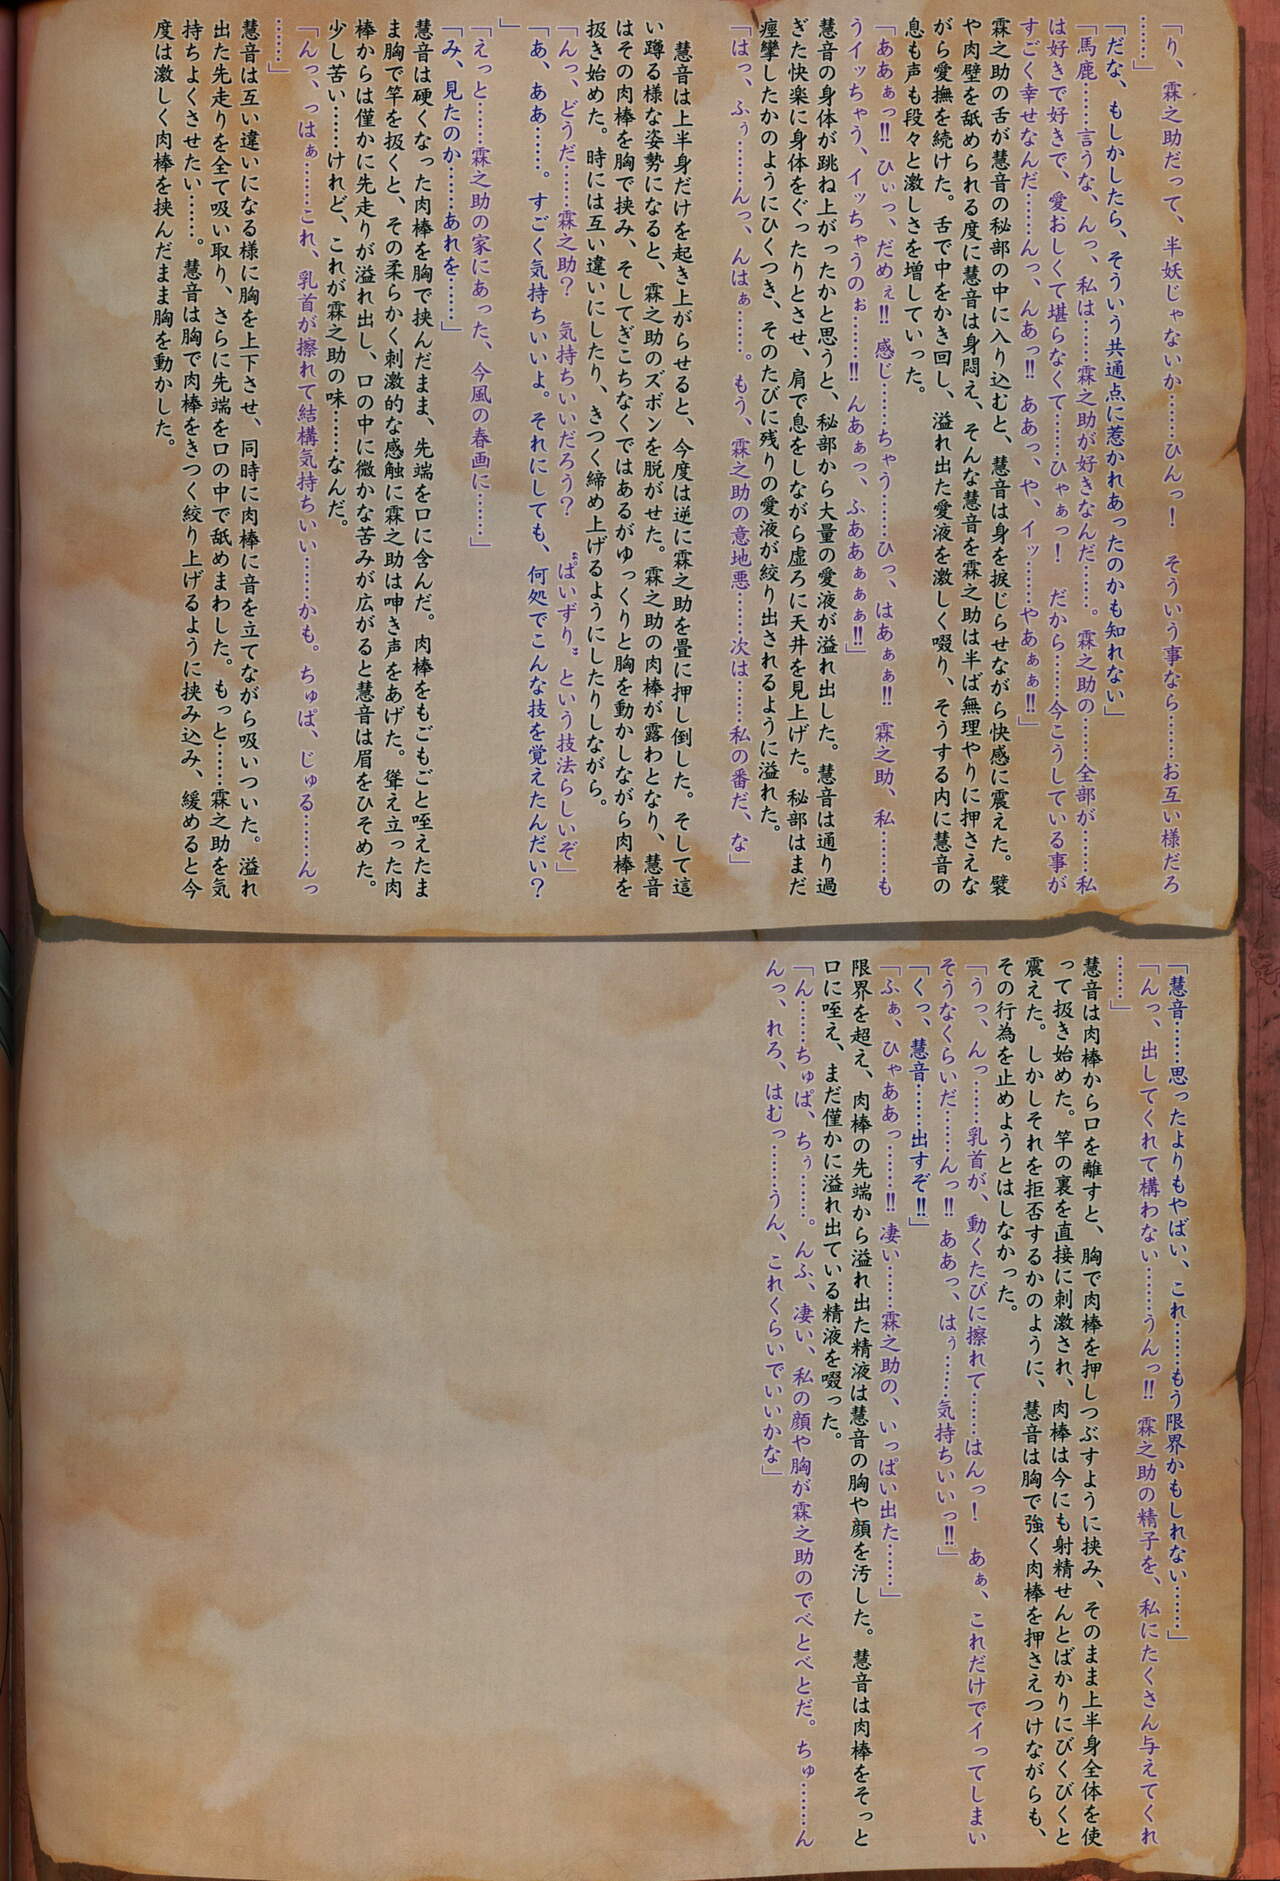 「り、霖之助だって、半妖じゃないか……ひんっ！　そういう事なら……お互い様だろ
……」
「だな、もしかしたら、そういう共通点に惹かれあったのかも知れない」
「馬鹿……言うな、んっ、私は……霖之助が好きなんだ……。霖之助の……全部が……私
は好きで好きで、愛おしくて堪らなくて……ひゃぁっ！　だから……今こうしている事が
すごく幸せなんだ……んっ、んあっ!! ああっ、や、イッ……やあぁぁ!!」
霖之助の舌が慧音の秘部の中に入り込むと、慧音は身を捩じらせながら快感に震えた。襞
や肉壁を舐められる度に慧音は身悶え、そんな慧音を霖之助は半ば無理やりに押さえな
がら愛撫を続けた。舌で中をかき回し、溢れ出た愛液を激しく啜り、そうする内に慧音の
息も声も段々と激しさを増していった。
「ああぁっ!! ひぃっ、だめぇ!! 感じ……ちゃう……ひっ、はあぁぁ!! 霖之助、私……も
うイッちゃう、イッちゃうのぉ……!! んあぁっ、ふああぁぁぁ!!」
慧音の身体が跳ね上がったかと思うと、秘部から大量の愛液が溢れ出した。慧音は通り過
ぎた快楽に身体をぐったりとさせ、肩で息をしながら虚ろに天井を見上げた。秘部はまだ
痙攣したかのようにひくつき、そのたびに残りの愛液が絞り出されるように溢れた。
「はっ、ふぅ……んっ、んはぁ……。もう、霖之助の意地悪……次は……私の番だ、な」
　慧音は上半身だけを起き上がらせると、今度は逆に霖之助を畳に押し倒した。そして這
い蹲る様な姿勢になると、霖之助のズボンを脱がせた。霖之助の肉棒が露わとなり、慧音
はその肉棒を胸で挟み、そしてぎこちなくではあるがゆっくりと胸を動かしながら肉棒を
扱き始めた。時には互い違いにしたり、きつく締め上げるようにしたりしながら。
「んっ、どうだ……霖之助？　気持ちいいだろう？　“ぱいずり”という技法らしいぞ」
「あ、ああ……。すごく気持ちいいよ。それにしても、何処でこんな技を覚えたんだい？
」
「えっと……霖之助の家にあった、今風の春画に……」
「み、見たのか……あれを……」
慧音は硬くなった肉棒を胸で挟んだまま、先端を口に含んだ。肉棒をもごもごと咥えたま
ま胸で竿を扱くと、その柔らかく刺激的な感触に霖之助は呻き声をあげた。聳え立った肉
棒からは僅かに先走りが溢れ出し、口の中に微かな苦みが広がると慧音は眉をひそめた。
少し苦い……けれど、これが霖之助の味……なんだ。
「んっ、っはぁ……これ、乳首が擦れて結構気持ちいい……かも。ちゅぱ、じゅる……んっ
……」
慧音は互い違いになる様に胸を上下させ、同時に肉棒に音を立てながら吸いついた。溢れ
出た先走りを全て吸い取り、さらに先端を口の中で舐めまわした。もっと……霖之助を気
持ちよくさせたい……。慧音は胸で肉棒をきつく絞り上げるように挟み込み、緩めると今
度は激しく肉棒を挟んだまま胸を動かした。
「慧音……思ったよりもやばい、これ……もう限界かもしれない……」
「んっ、出してくれて構わない……うんっ!! 霖之助の精子を、私にたくさん与えてくれ
……」
慧音は肉棒から口を離すと、胸で肉棒を押しつぶすように挟み、そのまま上半身全体を使
って扱き始めた。竿の裏を直接に刺激され、肉棒は今にも射精せんとばかりにびくびくと
震えた。しかしそれを拒否するかのように、慧音は胸で強く肉棒を押さえつけながらも、
その行為を止めようとはしなかった。
「うっ、んっ……乳首が、動くたびに擦れて……はんっ！　あぁ、これだけでイってしまい
そうなくらいだ……んっ!! ああっ、はぅ……気持ちいいっ!!」
「くっ、慧音……出すぞ!!」
「ふぁ、ひゃああっ……!! 凄い……霖之助の、いっぱい出た……」
限界を超え、肉棒の先端から溢れ出た精液は慧音の胸や顔を汚した。慧音は肉棒をそっと
口に咥え、まだ僅かに溢れ出ている精液を啜った。
「ん……ちゅぱ、ちぅ……。んふ、凄い、私の顔や胸が霖之助のでべとべとだ。ちゅ……ん
んっ、れろ、はむっ……うん、これくらいでいいかな」